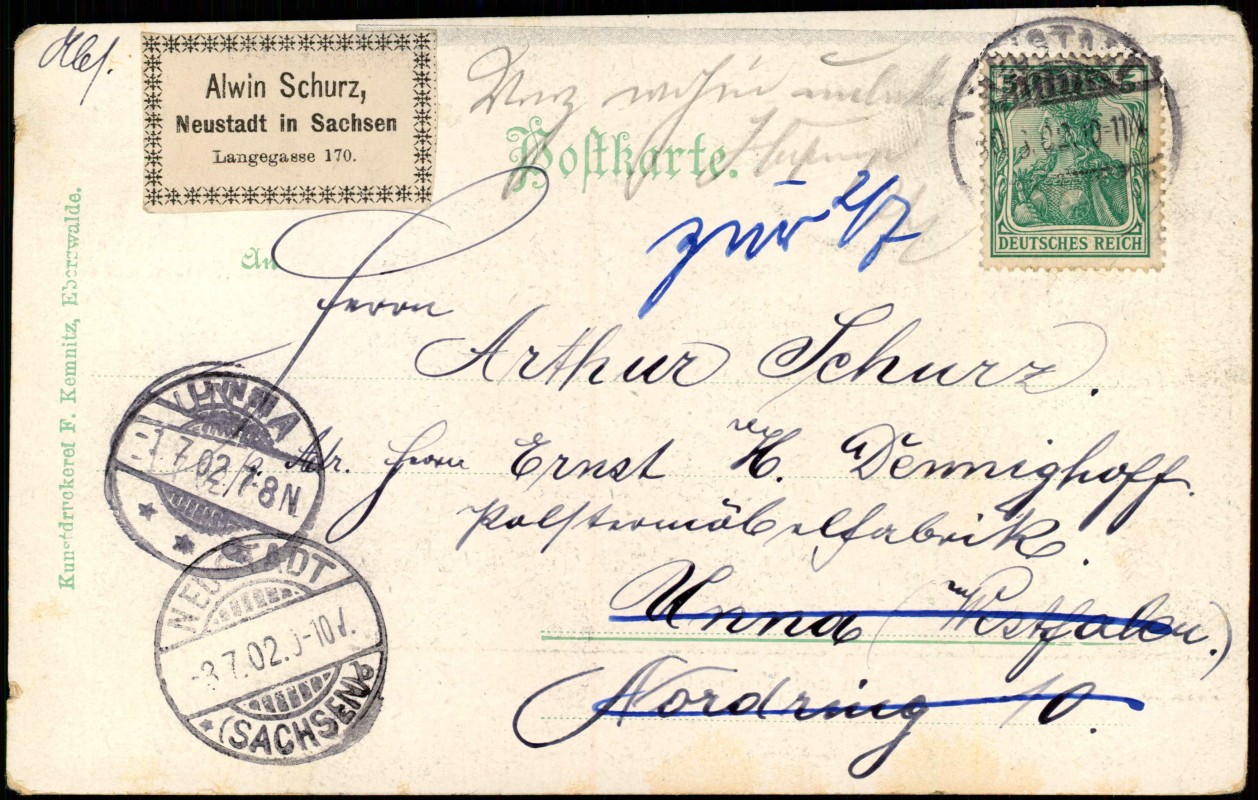 Abs.
Alwin Schurz,
Neustadt in Sachsen
Langegasse 170.
Postkarte.
zur 2/7
5 5
DEUTSCHES REICH
An
Herrn
Arthur Schurz.
Adr. Herrn Ernst H. Dennighoff.
Polstermöbelfabrik.
Unna (Westfalen.)
Nordring 10.
UNNA
-1.7.02 7-8N.
NEUSTADT
-3.7.02. -10V.
(SACHSEN)
Kunstdruckerei F. Kemnitz, Eberswalde.